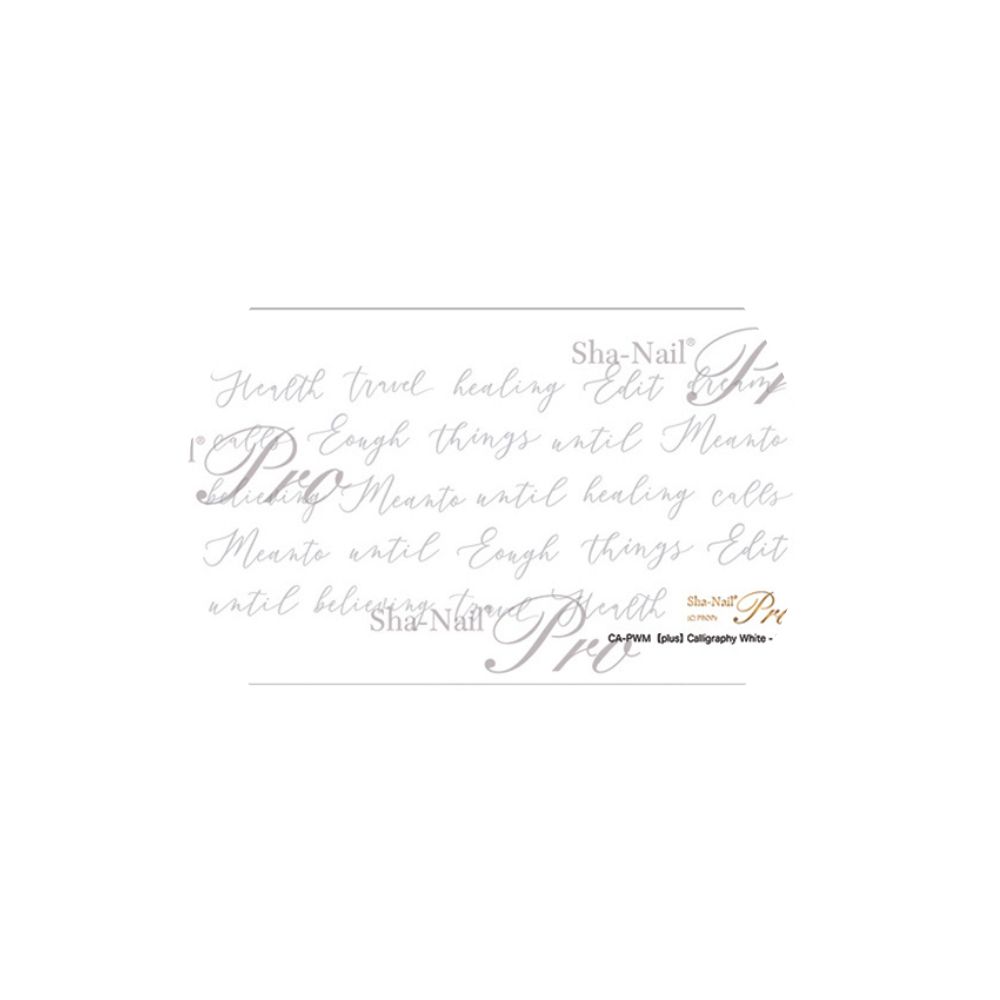 Sha-Nail®
Health travel healing Edit dreams
calls Eough things until Meanto
Pro
believing Meanto until healing calls
Meanto until Eough things Edit
until believing travel Health
Sha-Nail® Pro
Sha-Nail® Pro
CA-PWM 【plus】 Calligraphy White -